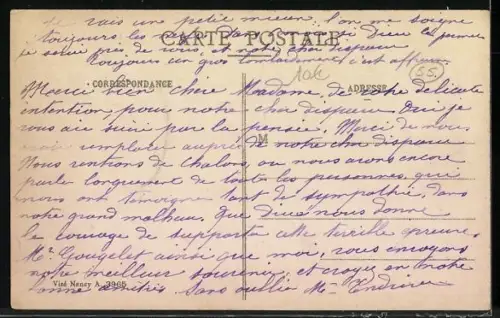 Je vais une petite mieux. l'on me soigne
toujours les
je serai près de vous, et notre cher disparu
CARTE POSTALE
toujours un gros bombardement c'est affreux
CORRESPONDANCE
ADRESSE
10c
55
M
Merci bien chère Madame, de votre délicate
intention, pour notre cher disparu. Oui je
vous ai suivi par la pensée, Merci de nous
avoir remplacer auprès de notre cher disparu
Nous rentrons de Chalons, ou nous avons encore
parler longuement de toutes les personnes, qui
nous ont témoignées tant de sympathie, dans
notre grand malheur. Que Dieu nous donne
le courage de supporter cette terrible épreuve.
Mr Gougelet ainsi que moi, nous envoyons
notre meilleur souvenir, et croyez en notre
bonne amitiés Sans oublie Me
Visé Nancy A. 3965